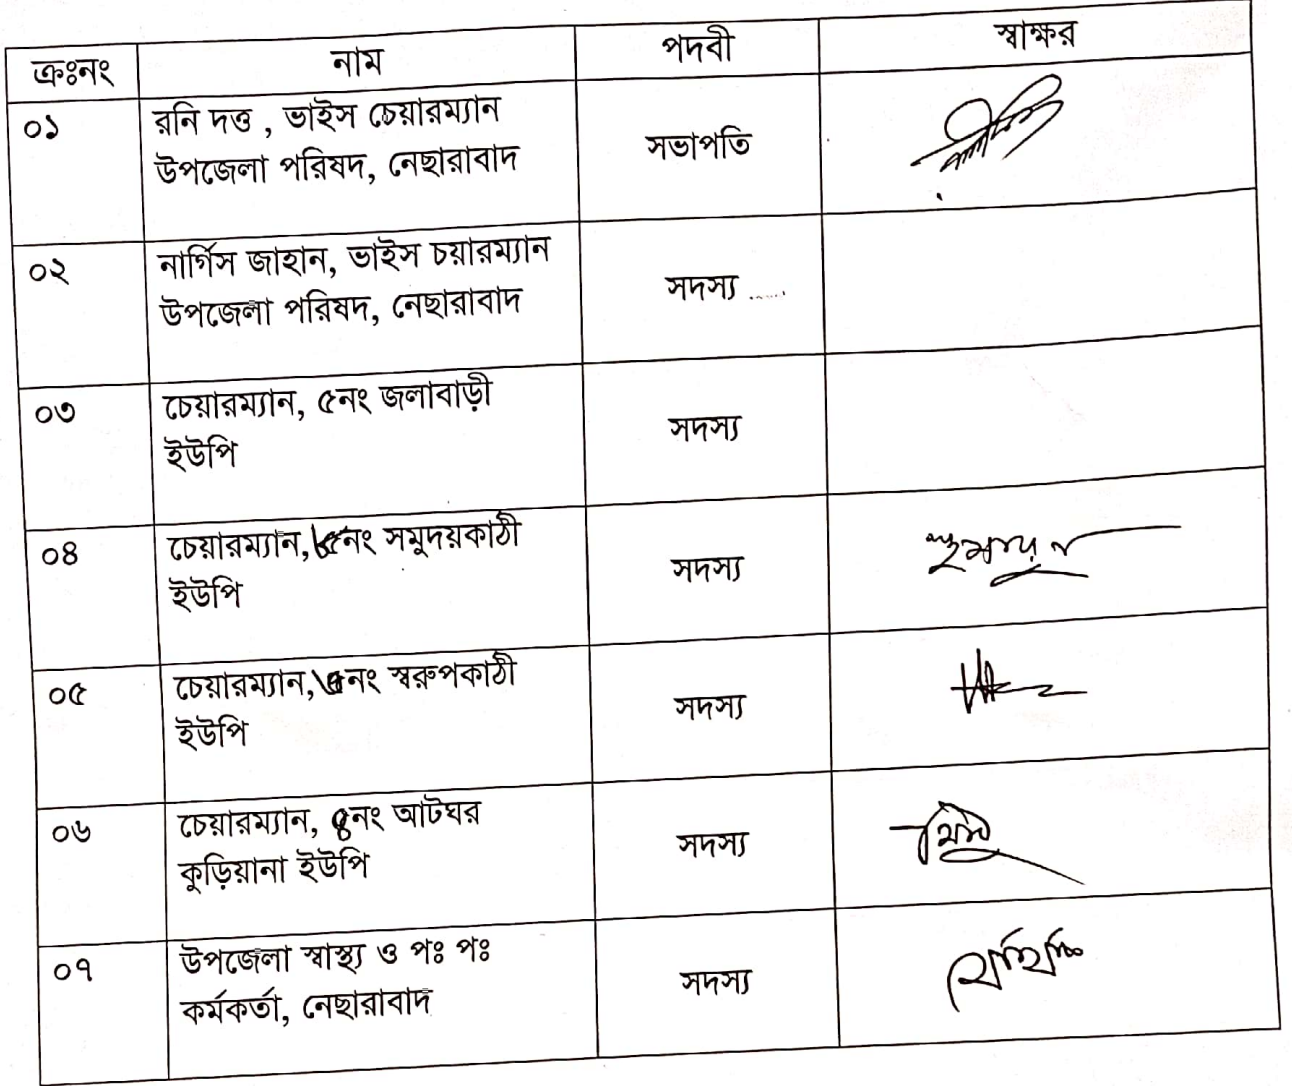 ক্রঃনং নাম পদবী স্বাক্ষর
০১ রনি দত্ত , ভাইস চেয়ারম্যান
উপজেলা পরিষদ, নেছারাবাদ
সভাপতি
০২ নার্গিস জাহান, ভাইস চয়ারম্যান
উপজেলা পরিষদ, নেছারাবাদ
সদস্য
০৩ চেয়ারম্যান, ৫নং জলাবাড়ী
ইউপি
সদস্য
০৪ চেয়ারম্যান, নং সমুদয়কাঠী
ইউপি
সদস্য
০৫ চেয়ারম্যান, নং স্বরুপকাঠী
ইউপি
সদস্য
০৬ চেয়ারম্যান, ৪নং আটঘর
কুড়িয়ানা ইউপি
সদস্য
০৭ উপজেলা স্বাস্থ্য ও পঃ পঃ
কর্মকর্তা, নেছারাবাদ
সদস্য